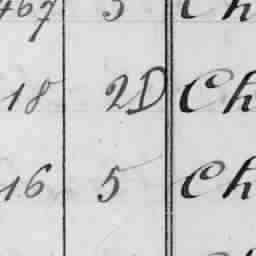 467 5 Ch
18 2D Ch
16 5 Ch